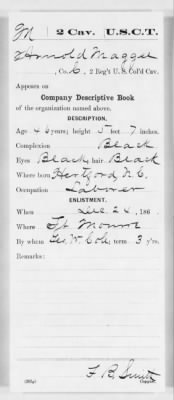 M | 2 Cav. | U.S.C.T.
Arnold Maggee
, Co. C, 2 Reg't U. S. Col'd Cav.
Appears on
Company Descriptive Book
of the organization named above.
DESCRIPTION.
Age 43 years; height 5 feet 7 inches.
Complexion Black
Eyes Black; hair Black
Where born Hertford, N.C.
Occupation Laborer
ENLISTMENT.
When Dec. 24, 186
Where Ft Monroe
By whom Geo. W. Cole; term 3 y'rs.
Remarks:
F. B. Smith
Copyist.